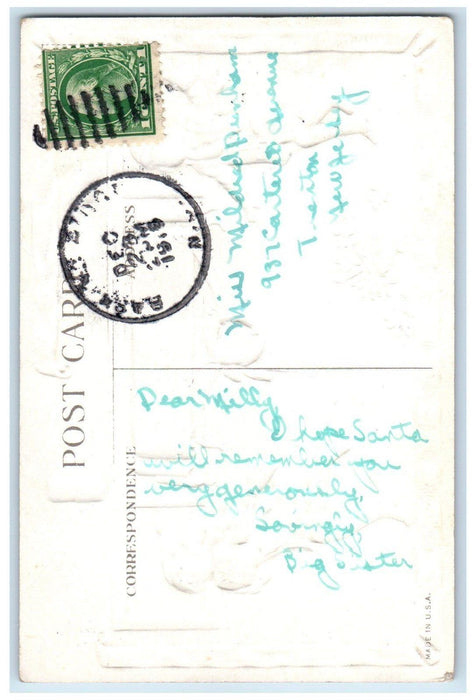 POSTAGE
1 CENT 1
DEC
1916
N.Y.
POST CARD
ADDRESS
Miss Mildred
937 Carteret Avenue
Trenton
New Jersey
CORRESPONDENCE
Dear Milly,
I hope Santa
will remember you
very generously.
Lovingly,
Big Sister
MADE IN U.S.A.